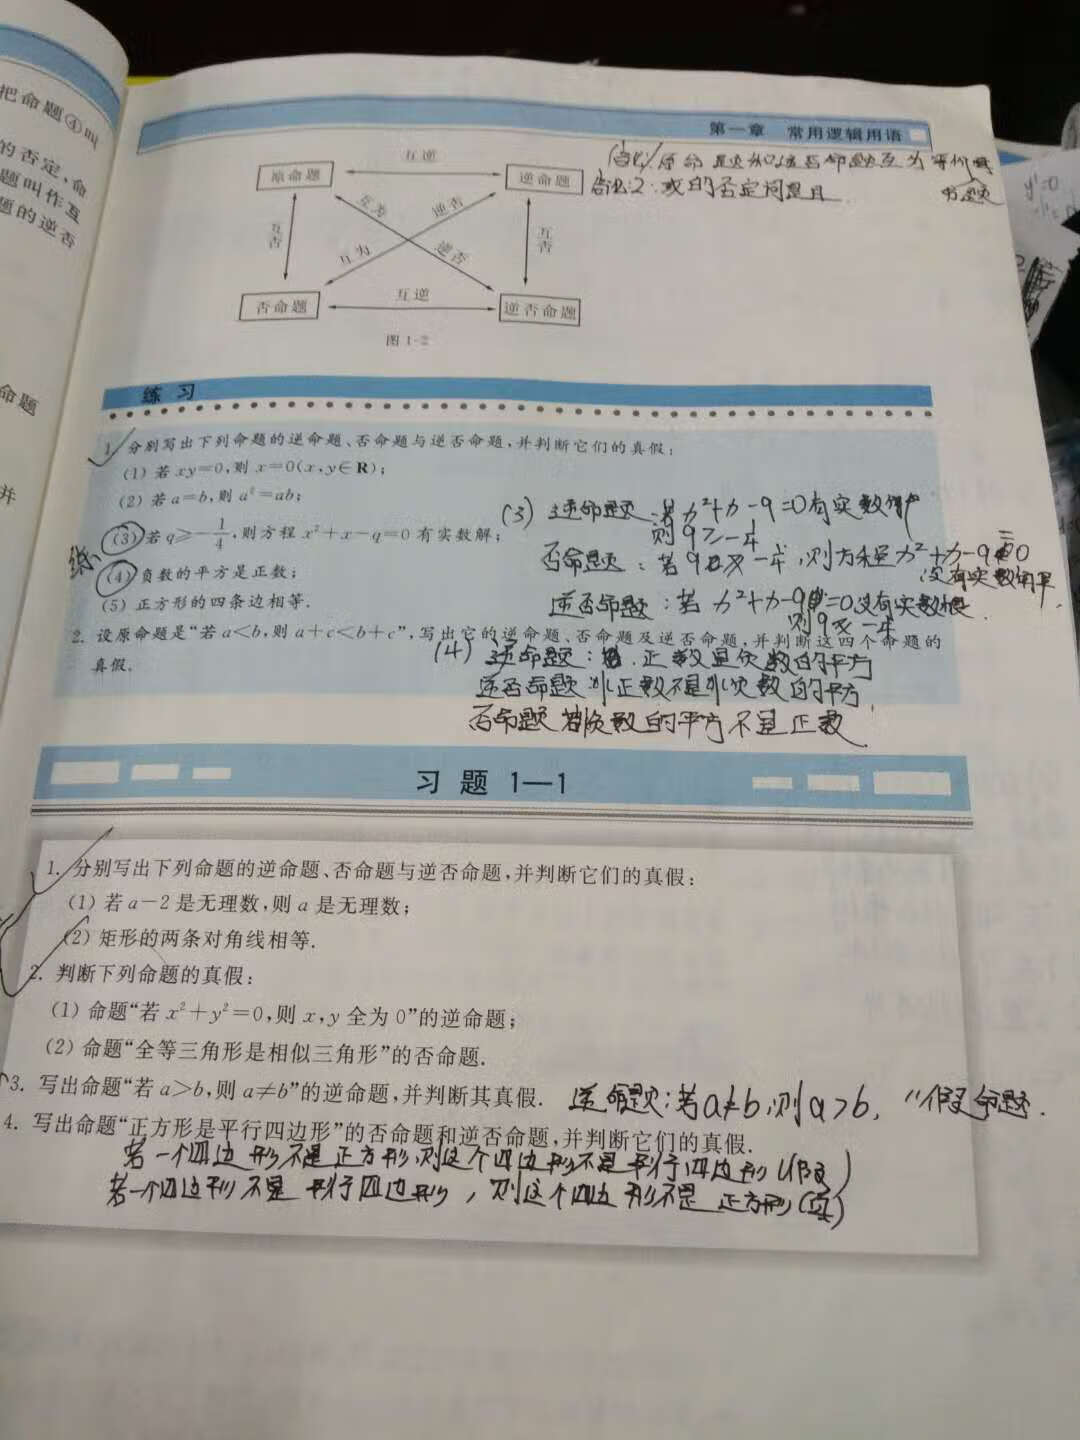 把命题④叫
的否定,命
题叫作互
题的逆否
命题
并
第一章 常用逻辑用语
原命题 互逆 逆命题
原命题和逆否命题互为等价
命题
2:或的否定词是且
互为 逆否
互否 互否
互为 逆否
否命题 互逆 逆否命题
图1-2
y'=0
练 习
1. 分别写出下列命题的逆命题、否命题与逆否命题,并判断它们的真假:
(1) 若 xy=0,则 x=0(x,y∈R);
(2) 若 a=b,则 a²=ab;
(3) 若 q≥-1/4,则方程 x²+x-q=0 有实数解;
(4) 负数的平方是正数;
(5) 正方形的四条边相等.
(3) 逆命题:若x²+x-q=0有实数解
则q≥-1/4
否命题:若q -1/4,则方程x²+x-q=0
没有实数
逆否命题:若x²+x-q=0没有实数根
则q -1/4
2. 设原命题是“若 a<b,则 a+c<b+c”,写出它的逆命题、否命题及逆否命题,并判断这四个命题的
真假.
(4) 逆命题:正数是负数的平方
逆否命题 非正数不是非负数的平方
否命题 若非负数的平方不是正数
习 题 1—1
1. 分别写出下列命题的逆命题、否命题与逆否命题,并判断它们的真假:
(1) 若 a-2 是无理数,则 a 是无理数;
(2) 矩形的两条对角线相等.
2. 判断下列命题的真假:
(1) 命题“若 x²+y²=0,则 x,y 全为 0”的逆命题;
(2) 命题“全等三角形是相似三角形”的否命题.
3. 写出命题“若 a>b,则 a≠b”的逆命题,并判断其真假. 逆命题:若a≠b,则a>b, 假命题.
4. 写出命题“正方形是平行四边形”的否命题和逆否命题,并判断它们的真假.
若一个四边形不是正方形,则这个四边形不是平行四边形(假)
若一个四边形不是平行四边形,则这个四边形不是正方形(真)